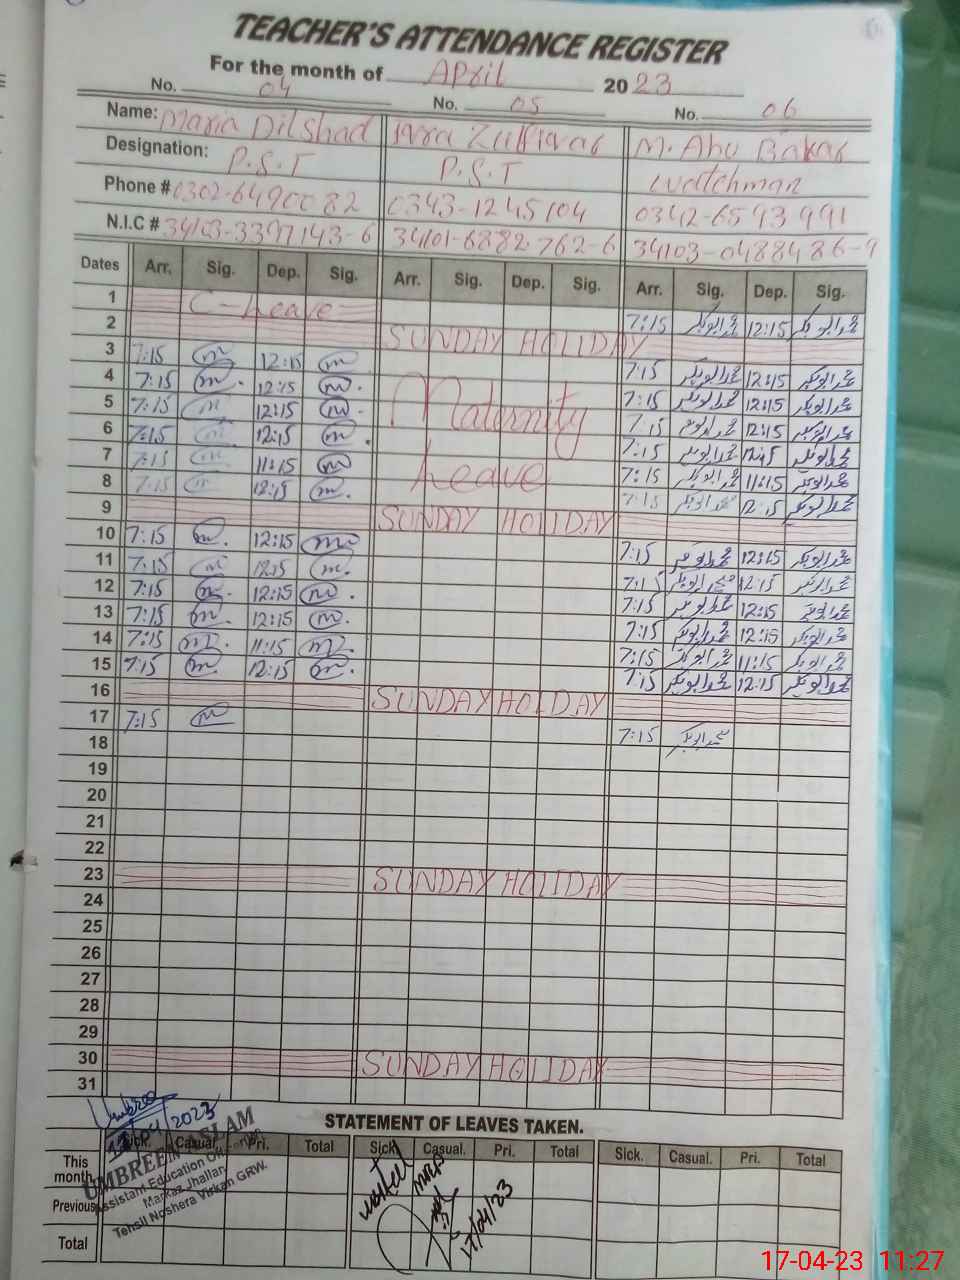 TEACHER'S ATTENDANCE REGISTER
For the month of April 2023
No. 04 No. 05 No. 06
Name: Maria Dilshad M. Abu Bakar
Designation: P.S.T P.S.T Watchman
Phone # 0302-6490082 0343-1245104 0342-6593991
N.I.C # 34103-3397143-6 34101-6882762-6 34103-0488486-9
Dates Arr. Sig. Dep. Sig. Arr. Sig. Dep. Sig. Arr. Sig. Dep. Sig.
1 C-Leave 7:15 محمد ابوبکر 12:15 محمد ابوبکر
2 SUNDAY HOLIDAY
3 7:15 m 12:15 m 7:15 محمد ابوبکر 12:15 محمد ابوبکر
4 7:15 m. 12:15 m. Maternity 7:15 محمد ابوبکر 12:15 محمد ابوبکر
5 7:15 m 12:15 m. 7:15 محمد ابوبکر 12:15 محمد ابوبکر
6 7:15 m 12:15 m. 7:15 محمد ابوبکر محمد ابوبکر
7 7:15 m 11:15 m Leave 7:15 محمد ابوبکر 11:15 محمد ابوبکر
8 7:15 m 12:15 m. 7:15 محمد ابوبکر 12:15 محمد ابوبکر
9 SUNDAY HOLIDAY
10 7:15 m. 12:15 m 7:15 محمد ابوبکر 12:15 محمد ابوبکر
11 7:15 m 12:15 m. محمد ابوبکر 12:15 محمد ابوبکر
12 7:15 m. 12:15 m. 7:15 محمد ابوبکر 12:15 محمد ابوبکر
13 7:15 m. 12:15 m. 7:15 محمد ابوبکر 12:15 محمد ابوبکر
14 7:15 m. 11:15 m. 7:15 محمد ابوبکر 11:15 محمد ابوبکر
15 7:15 m. 12:15 m. 7:15 محمد ابوبکر 12:15 محمد ابوبکر
16 SUNDAY HOLIDAY
17 7:15 m 7:15 محمد ابوبکر
18
19
20
21
22
23 SUNDAY HOLIDAY
24
25
26
27
28
29
30 SUNDAY HOLIDAY
31
STATEMENT OF LEAVES TAKEN.
Sick. Casual. Pri. Total Sick. Casual. Pri. Total Sick. Casual. Pri. Total
This month
Previous
Total
Umbreen
/04/2023
UMBREEN ASLAM
Assistant Education Officer
Markaz Jhallan
Tehsil Noshera Virkan GRW.
17/04/23
17-04-23 11:27